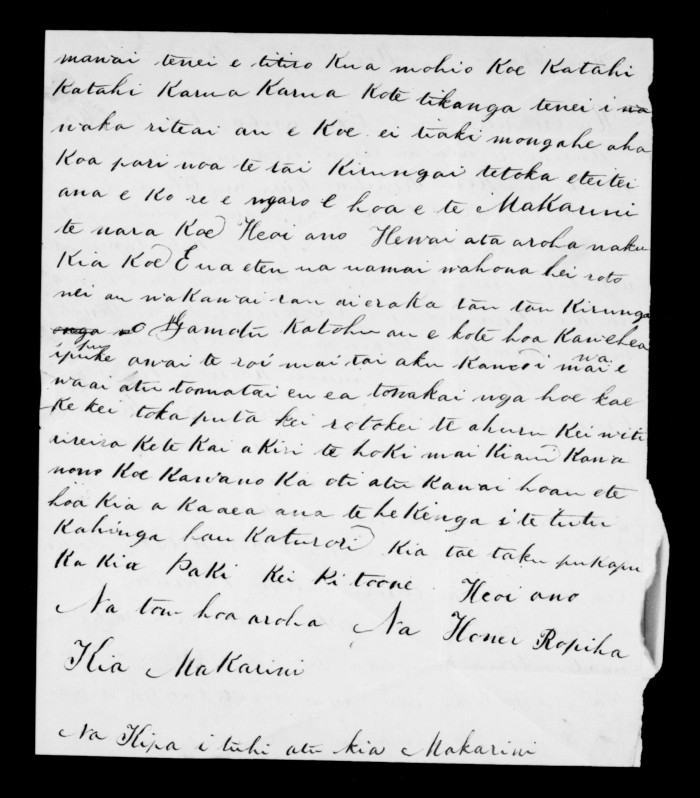 mawai tenei e titiro Kua mohio Koe Katahi
Katahi Karua Karua Kote tikanga tenei i wa
waka riteai au e Koe ei tiaki mongahe aha
Koa pari noa te tai Kirungai tetoka eteitei
ana e Ko re e ngaro E hoa e te MaKarini
te nara Koe Heoi ano Hewai ata aroha naku
Kia Koe E ua eten na uamai wahona hei roto
nei au wakawai rau aieraka tau tau Kirunga
Katohu au e kote hoa Kawehea
ipuke awai te roi mai tai aku Kanooi mai e
wa
waai atu tomatai eu ea towakai nga hoe kae
Ke kei toka puta kei rotokei te ahuru Kei witi
rireira Kete Kai aKiri te hoki mai Kiau Kawa
nono Koe Kawano Ka oti atu Kawai hoau ete
hoa Kia a Kaaea ana te heKenga i te tutu
Kahinga hau Katurori Kia tae taku pukapu
Ka Kia Paki Kei Pitoone Heoi ano
Na tou hoa aroha Na Honei Ropiha
Kia MaKarini
Na Kipa i tuhi atu kia Makarini